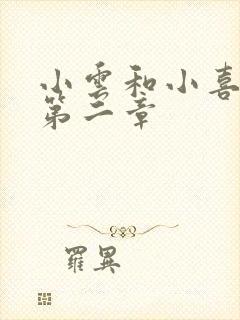 小雲和小喜
第二章
羅異